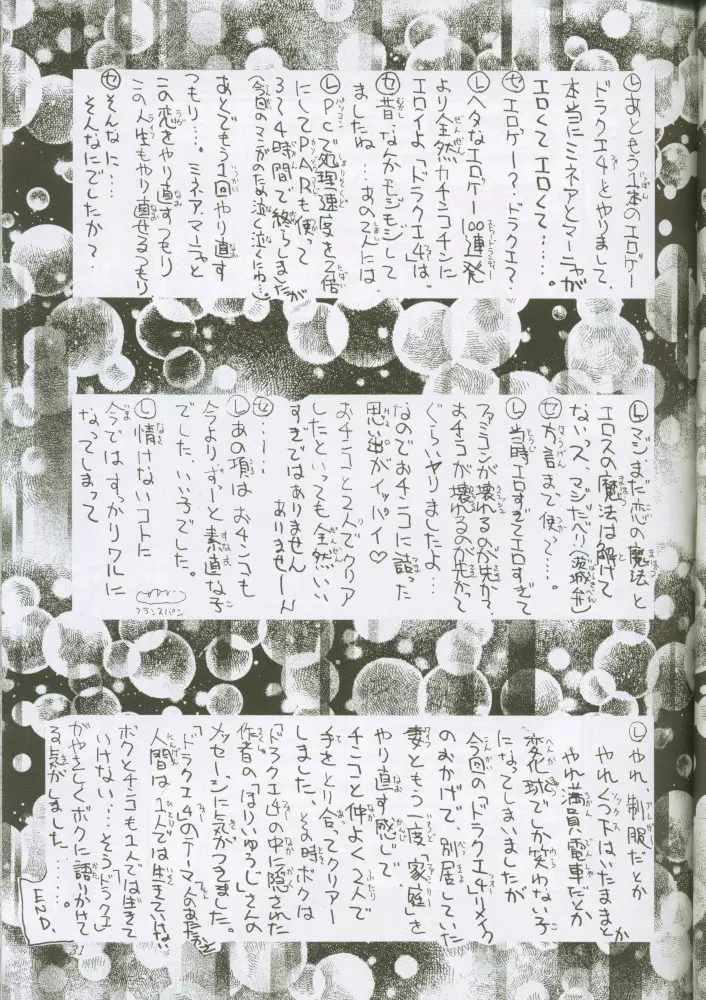 Ⓛあともう1本のエロゲー
ドラクエ4とやりまして、
本当にミネアとマーニャが
エロくてエロくて……。
㋝エロゲー？.ドラクエ？
Ⓛヘタなエロゲー100連発
より全然カチンコチンに
エロイよ「ドラクエ4」は。
㋝昔、なんかモジモジして
ましたね…あの2人には。
ⓁPCで処理速度を2倍
にしてPARも使って
3〜4時間で終らしましたが
(今回のマンガの長泣く泣くにゅ…)
あとでもう1回やり直す
つもり…。ミネア、マーニャと
この恋をやり直すつもり
この人生もやり直せるつもり
㋝そんなに…
そんなにでしたか？
Ⓛマジまだ恋の魔法と
エロスの魔法は解けて
ないっス、マジだべり(茨城弁)
㋝方言まで使って…。
Ⓛ当時エロすぎてエロすぎて
ファミコンが壊れるのが先か？
おチコが壊れるのが先かって
ぐらいヤリましたよ…
なのでおチンコに誤った
思い出がイッパイ♡
おチンコと2人でクリア
したといっても全然いい
すぎではありません
ありませーん
㋝……
Ⓛあの頃はおチンコも
今よりずーと素直な子
でした。いい子でした。
Ⓛ情けないコトに
今ではすっかりワルに
なってしまって
フランスパン
Ⓛやれ、制服だとか
やれくつ下はいたままとか
やれ満員電車だとか
変化球でしか笑わない子
になってしまいましたが
今回の「ドラクエ4」リメイク
のおかげで、別居していた
妻ともう一度「家庭」を
やり直す感じで、
チンコと仲よく2人で
手をとり合ってクリアー
しました。その時ボクは
「ドラクエ4」の中に隠された
作者の「ほりいゆうじ」さんの
メッセージに気がつきました。
「ドラクエ4」のテーマ
人間は1人では生きていけない
ボクとチンコも1人では生きて
いけない…そうドラクエ
がやさしくボクに語りかけて
る気がしました……。
END.
31